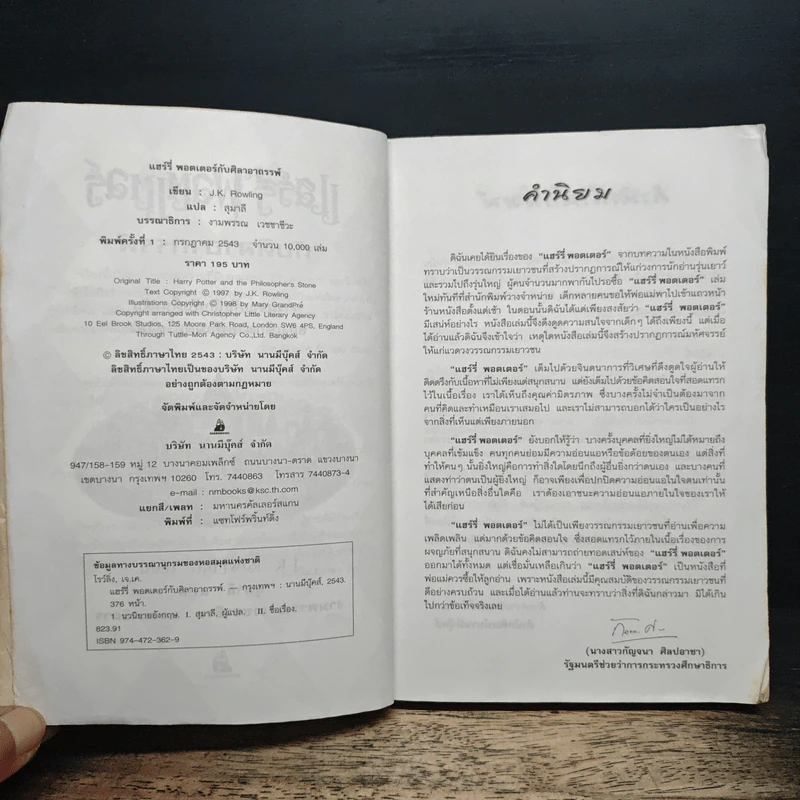 แฮร์รี่ พอตเตอร์กับศิลาอาถรรพ์
เขียน : J.K. Rowling
แปล : สุมาลี
บรรณาธิการ : งามพรรณ เวชชาชีวะ
พิมพ์ครั้งที่ 1 : กรกฎาคม 2543 จำนวน 10,000 เล่ม
ราคา 195 บาท
Original Title : Harry Potter and the Philosopher's Stone
Text Copyright © 1997 by J.K. Rowling
Illustrations Copyright © 1998 by Mary GrandPré
Copyright arranged with Christopher Little Literary Agency
10 Eel Brook Studios, 125 Moore Park Road, London SW6 4PS, England
Through Tuttle-Mori Agency Co.,Ltd. Bangkok
© ลิขสิทธิ์ภาษาไทย 2543 : บริษัท นานมีบุ๊คส์ จำกัด
ลิขสิทธิ์ภาษาไทยเป็นของบริษัท นานมีบุ๊คส์ จำกัด
อย่างถูกต้องตามกฎหมาย
จัดพิมพ์และจัดจำหน่ายโดย
บริษัท นานมีบุ๊คส์ จำกัด
947/158-159 หมู่ 12 บางนาคอมเพล็กซ์ ถนนบางนา-ตราด แขวงบางนา
เขตบางนา กรุงเทพฯ 10260 โทร. 7440863 โทรสาร 7440873-4
e-mail : nmbooks@ksc.th.com
แยกสี/เพลท : มหานครคัลเลอร์สแกน
พิมพ์ที่ : แซทโฟร์พริ้นท์ติ้ง
ข้อมูลทางบรรณานุกรมของหอสมุดแห่งชาติ
โรว์ลิ่ง, เจ.เค.
แฮร์รี่ พอตเตอร์กับศิลาอาถรรพ์. — กรุงเทพฯ : นานมีบุ๊คส์, 2543.
376 หน้า.
1. นวนิยายอังกฤษ. I. สุมาลี, ผู้แปล. II. ชื่อเรื่อง.
823.91
ISBN 974-472-362-9
คำนิยม
ดิฉันเคยได้ยินเรื่องของ "แฮร์รี่ พอตเตอร์" จากบทความในหนังสือพิมพ์
ทราบว่าเป็นวรรณกรรมเยาวชนที่สร้างปรากฏการณ์ให้แก่วงการนักอ่านรุ่นเยาว์
และรวมไปถึงรุ่นใหญ่ ผู้คนจำนวนมากพากันไปรอซื้อ "แฮร์รี่ พอตเตอร์" เล่ม
ใหม่ทันทีที่สำนักพิมพ์วางจำหน่าย เด็กหลายคนขอให้พ่อแม่พาไปเข้าแถวหน้า
ร้านหนังสือตั้งแต่เช้า ในตอนนั้นดิฉันได้แต่เพียงสงสัยว่า "แฮร์รี่ พอตเตอร์"
มีเสน่ห์อย่างไร หนังสือเล่มนี้จึงดึงดูดความสนใจจากเด็กๆ ได้ถึงเพียงนี้ แต่เมื่อ
ได้อ่านแล้วดิฉันจึงเข้าใจว่า เหตุใดหนังสือเล่มนี้จึงสร้างปรากฏการณ์มหัศจรรย์
ให้แก่แวดวงวรรณกรรมเยาวชน
"แฮร์รี่ พอตเตอร์" เต็มไปด้วยจินตนาการที่วิเศษที่ดึงดูดใจผู้อ่านให้
ติดตรึงกับเนื้อหาที่ไม่เพียงแต่สนุกสนาน แต่ยังเต็มไปด้วยข้อคิดสอนใจที่สอดแทรก
ไว้ในเนื้อเรื่อง เราได้เห็นถึงคุณค่ามิตรภาพ ซึ่งบางครั้งไม่จำเป็นต้องมาจาก
คนที่คิดและทำเหมือนเราเสมอไป และเราไม่สามารถบอกได้ว่าใครเป็นอย่างไร
จากสิ่งที่เห็นแต่เพียงภายนอก
"แฮร์รี่ พอตเตอร์" ยังบอกให้รู้ว่า บางครั้งบุคคลที่ยิ่งใหญ่ไม่ได้หมายถึง
บุคคลที่เข้มแข็ง คนทุกคนย่อมมีความอ่อนแอหรือข้อด้อยของตนเอง แต่สิ่งที่
ทำให้คนๆ นั้นยิ่งใหญ่คือการทำสิ่งใดโดยนึกถึงผู้อื่นยิ่งกว่าตนเอง และบางคนที่
แสดงท่าทีว่าตนเป็นผู้ยิ่งใหญ่ ก็อาจเพียงเพื่อปกปิดความอ่อนแอในใจตนเท่านั้น
ที่สำคัญเหนือสิ่งอื่นใดคือ เราต้องเอาชนะความอ่อนแอภายในใจของเราให้
ได้เสียก่อน
"แฮร์รี่ พอตเตอร์" ไม่ได้เป็นเพียงวรรณกรรมเยาวชนที่อ่านเพื่อความ
เพลิดเพลิน แต่มากด้วยข้อคิดสอนใจ ซึ่งสอดแทรกไว้ภายในเนื้อเรื่องของการ
ผจญภัยที่สนุกสนาน ดิฉันคงไม่สามารถถ่ายทอดเสน่ห์ของ "แฮร์รี่ พอตเตอร์"
ออกมาได้ทั้งหมด แต่เชื่อมั่นเหลือเกินว่า "แฮร์รี่ พอตเตอร์" เป็นหนังสือที่
พ่อแม่ควรซื้อให้ลูกอ่าน เพราะหนังสือเล่มนี้มีคุณสมบัติของวรรณกรรมเยาวชนที่
ดีอย่างครบถ้วน และเมื่อได้อ่านแล้วท่านจะทราบว่าสิ่งที่ดิฉันกล่าวมา มิได้เกิน
ไปกว่าข้อเท็จจริงเลย
(นางสาวกัญจนา ศิลปอาชา)
รัฐมนตรีช่วยว่าการกระทรวงศึกษาธิการ